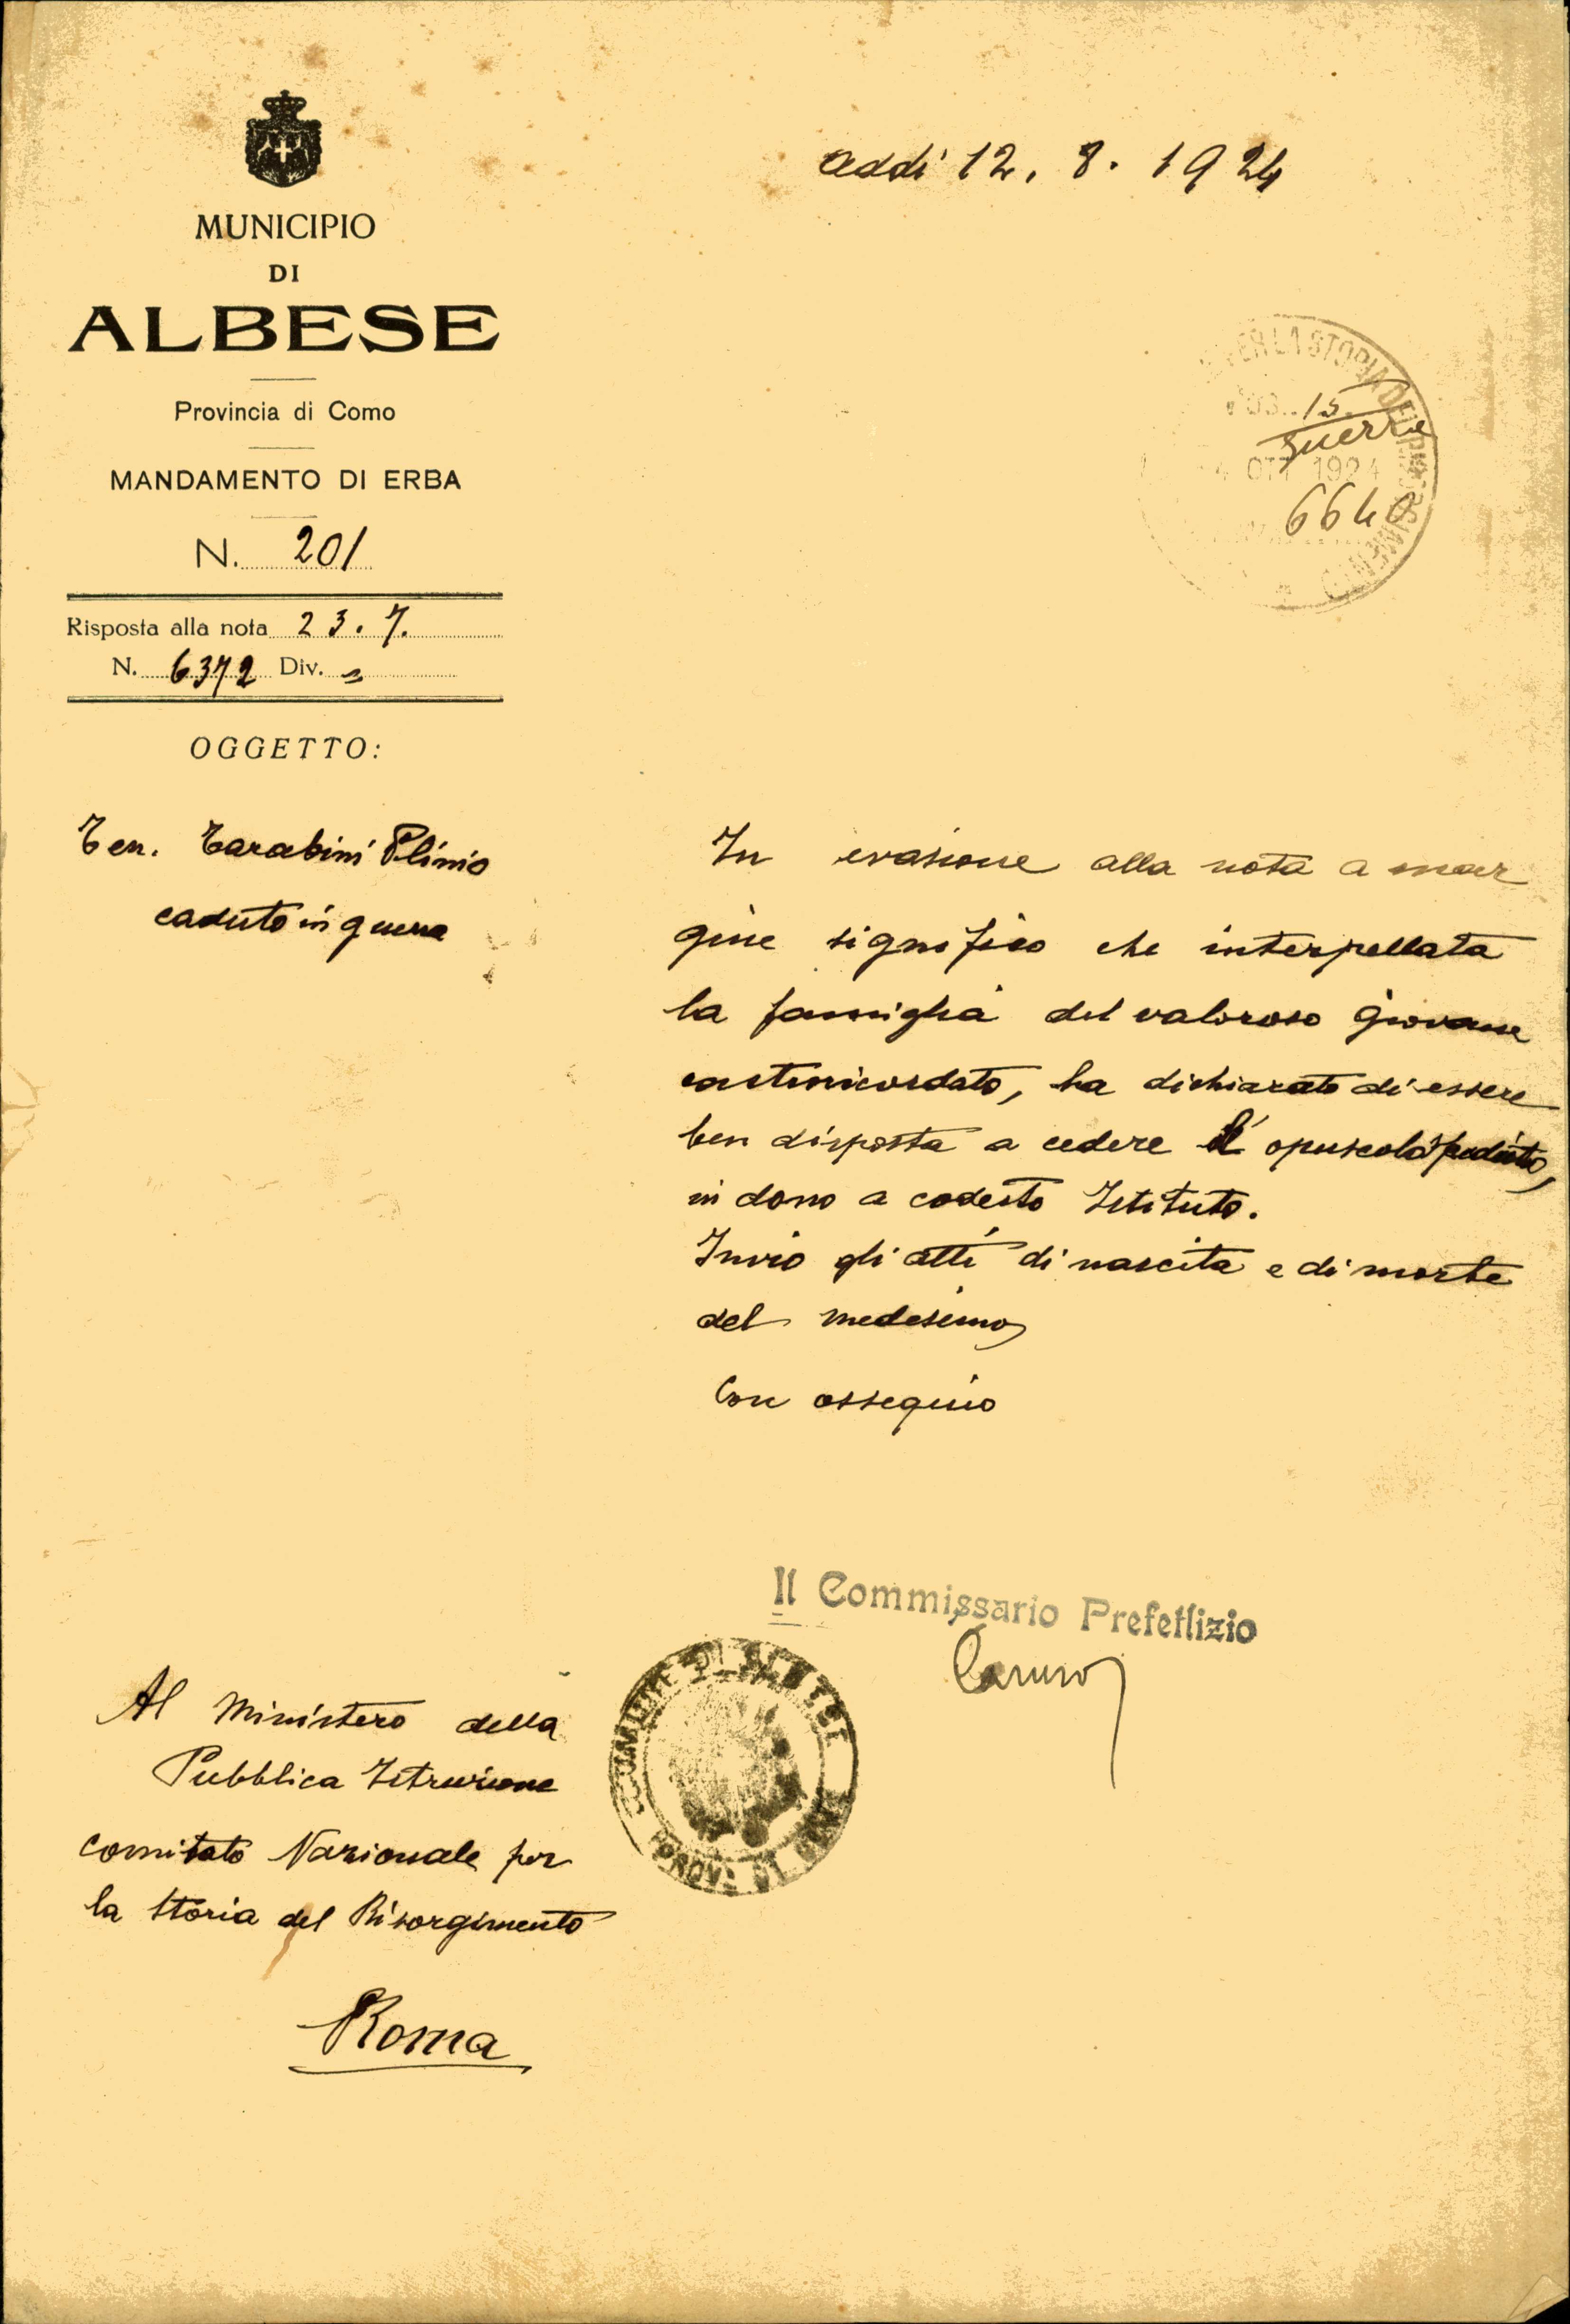 addi 12. 8. 1924
MUNICIPIO
DI
ALBESE
Provincia di Como
MANDAMENTO DI ERBA
N. 201
Risposta alla nota 23.7.
N. 6372 Div. =
OGGETTO:
Ten. Tarabini Plinio
caduto in guerra
PER LA STORIA DEL RISORGIMENTO
POS. 15.
guerra
4 OTT 1924
6640
In evasione alla nota a mar
gine significo che interpellata
la famiglia del valoroso giovane
controricordato, ha dichiarato di essere
ben disposta a cedere l' opuscolo spedito,
in dono a codesto Istituto.
Invio gli atti di nascita e di morte
del medesimo
Con ossequio
Il Commissario Prefettizio
Caruso
COMUNE DI ALBESE
Al Ministero della
Pubblica Istruzione
Comitato Nazionale per
la Storia del Risorgimento
Roma